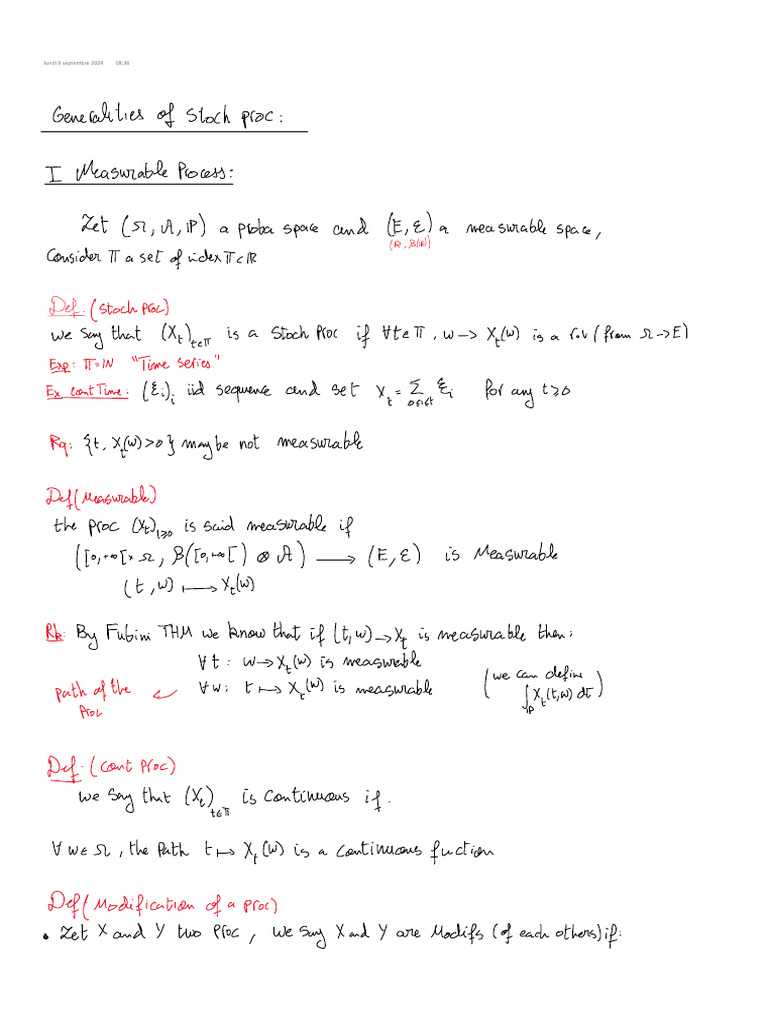 lundi 9 septembre 2024 08:36
Generalities of Stoch proc:
I Measurable Process:
Let (Ω, A, P) a proba space and (E, ℰ) a measurable space,
(R, B(R))
Consider 𝕋 a set of index 𝕋 ⊂ ℝ
Def. (Stoch proc)
We say that (X_t)_{t∈𝕋} is a Stoch Proc if ∀t∈𝕋, w → X_t(w) is a r.v (from Ω → E)
Exp: 𝕋=ℕ "Time series"
Ex cont Time: (ξ_i)_i iid sequence and set X_t = Σ_{0≤i≤t} ξ_i for any t ≥ 0
Rq: {t, X_t(w) > 0} may be not measurable
Def (Measurable)
the proc (X_t)_{t≥0} is said measurable if
([0,+∞[ × Ω, B([0,+∞[) ⊗ A) ⟶ (E, ℰ) is Measurable
(t, w) ⟼ X_t(w)
Rk: By Fubini THM we know that if (t, w) → X_t is measurable then:
∀t: w → X_t(w) is measurable
path of the proc ← ∀w: t ↦ X_t(w) is measurable (we can define ∫_ℝ X_t(t,w) dt)
Def. (Cont Proc)
We say that (X_t)_{t∈𝕋} is continuous if.
∀ w∈Ω, the path t ↦ X_t(w) is a continuous fuction
Def (Modification of a proc)
• Let X and Y two Proc, we say X and Y are Modifs (of each others) if: